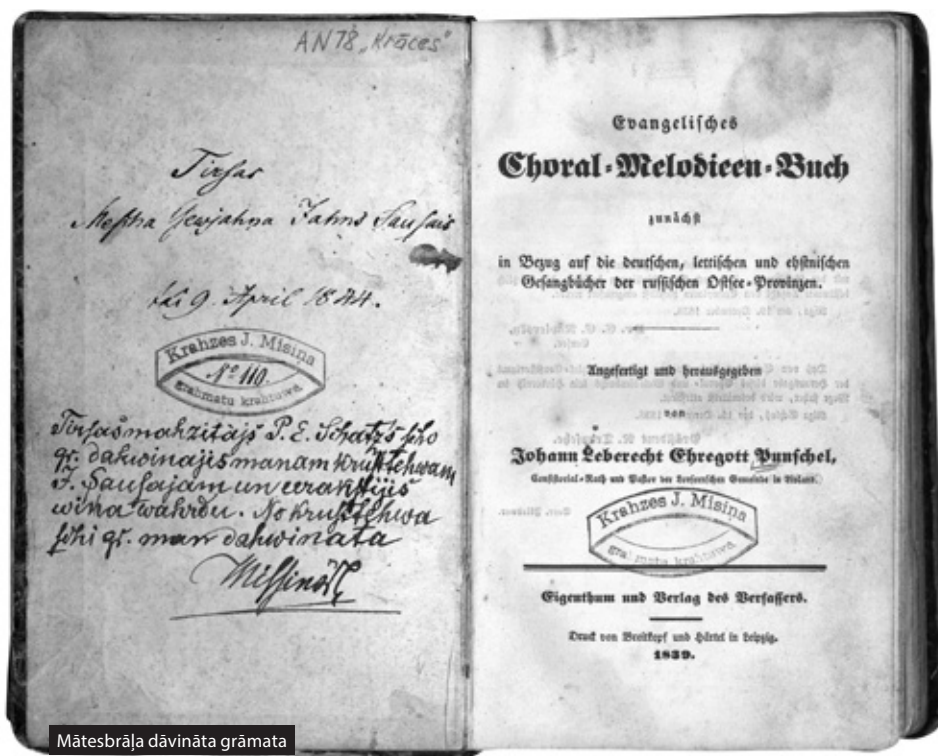 AN78 „Krāces"
Tirsas
Jahns Sausais
9 April 1844.
Krahzes J. Misiņa
№ 110.
grahmatu krahtuwa
Tirsas mahzitajs P. E. Schatzs scho
gr. dahwinajis manam krusttehwam
J. Sausajam un eerakstijis
wiņa wahrdu. No krusttehwa
schi gr. man dahwinata
Missinsch
Mātesbrāļa dāvināta grāmata
Evangelisches
Choral-Melodieen-Buch
zunächst
in Bezug auf die deutschen, lettischen und ehstnischen
Gesangbücher der russischen Ostsee-Provinzen.
Angefertigt und herausgegeben
von
Johann Leberecht Ehregott Punschel,
Consistorial-Rath und Pastor der Loesernschen Gemeinde in Livland.
Krahzes J. Misiņa
grahmatu krahtuwa
Eigenthum und Verlag des Verfassers.
Druck von Breitkopf und Härtel in Leipzig.
1839.